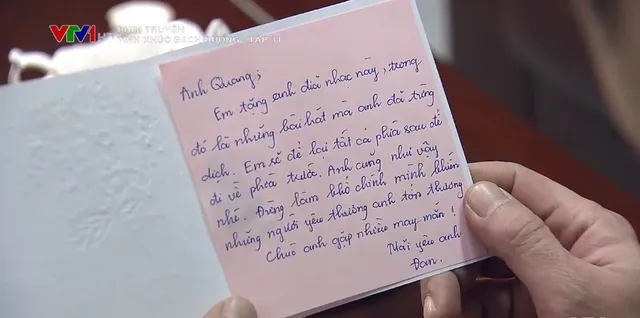 VTV1
PHIM TRUYỆN
TÌNH KHÚC BẠCH DƯƠNG - TẬP
Anh Quang,
Em tặng anh đĩa nhạc này, trong
đó là những bài hát mà anh đã từng
thích. Em sẽ để lại tất cả phía sau để
đi về phía trước. Anh cũng như vậy
nhé. Đừng làm khó chính mình khiến
những người yêu thương anh tổn thương
Chúc anh gặp nhiều may mắn!
Mãi yêu anh
Đan.